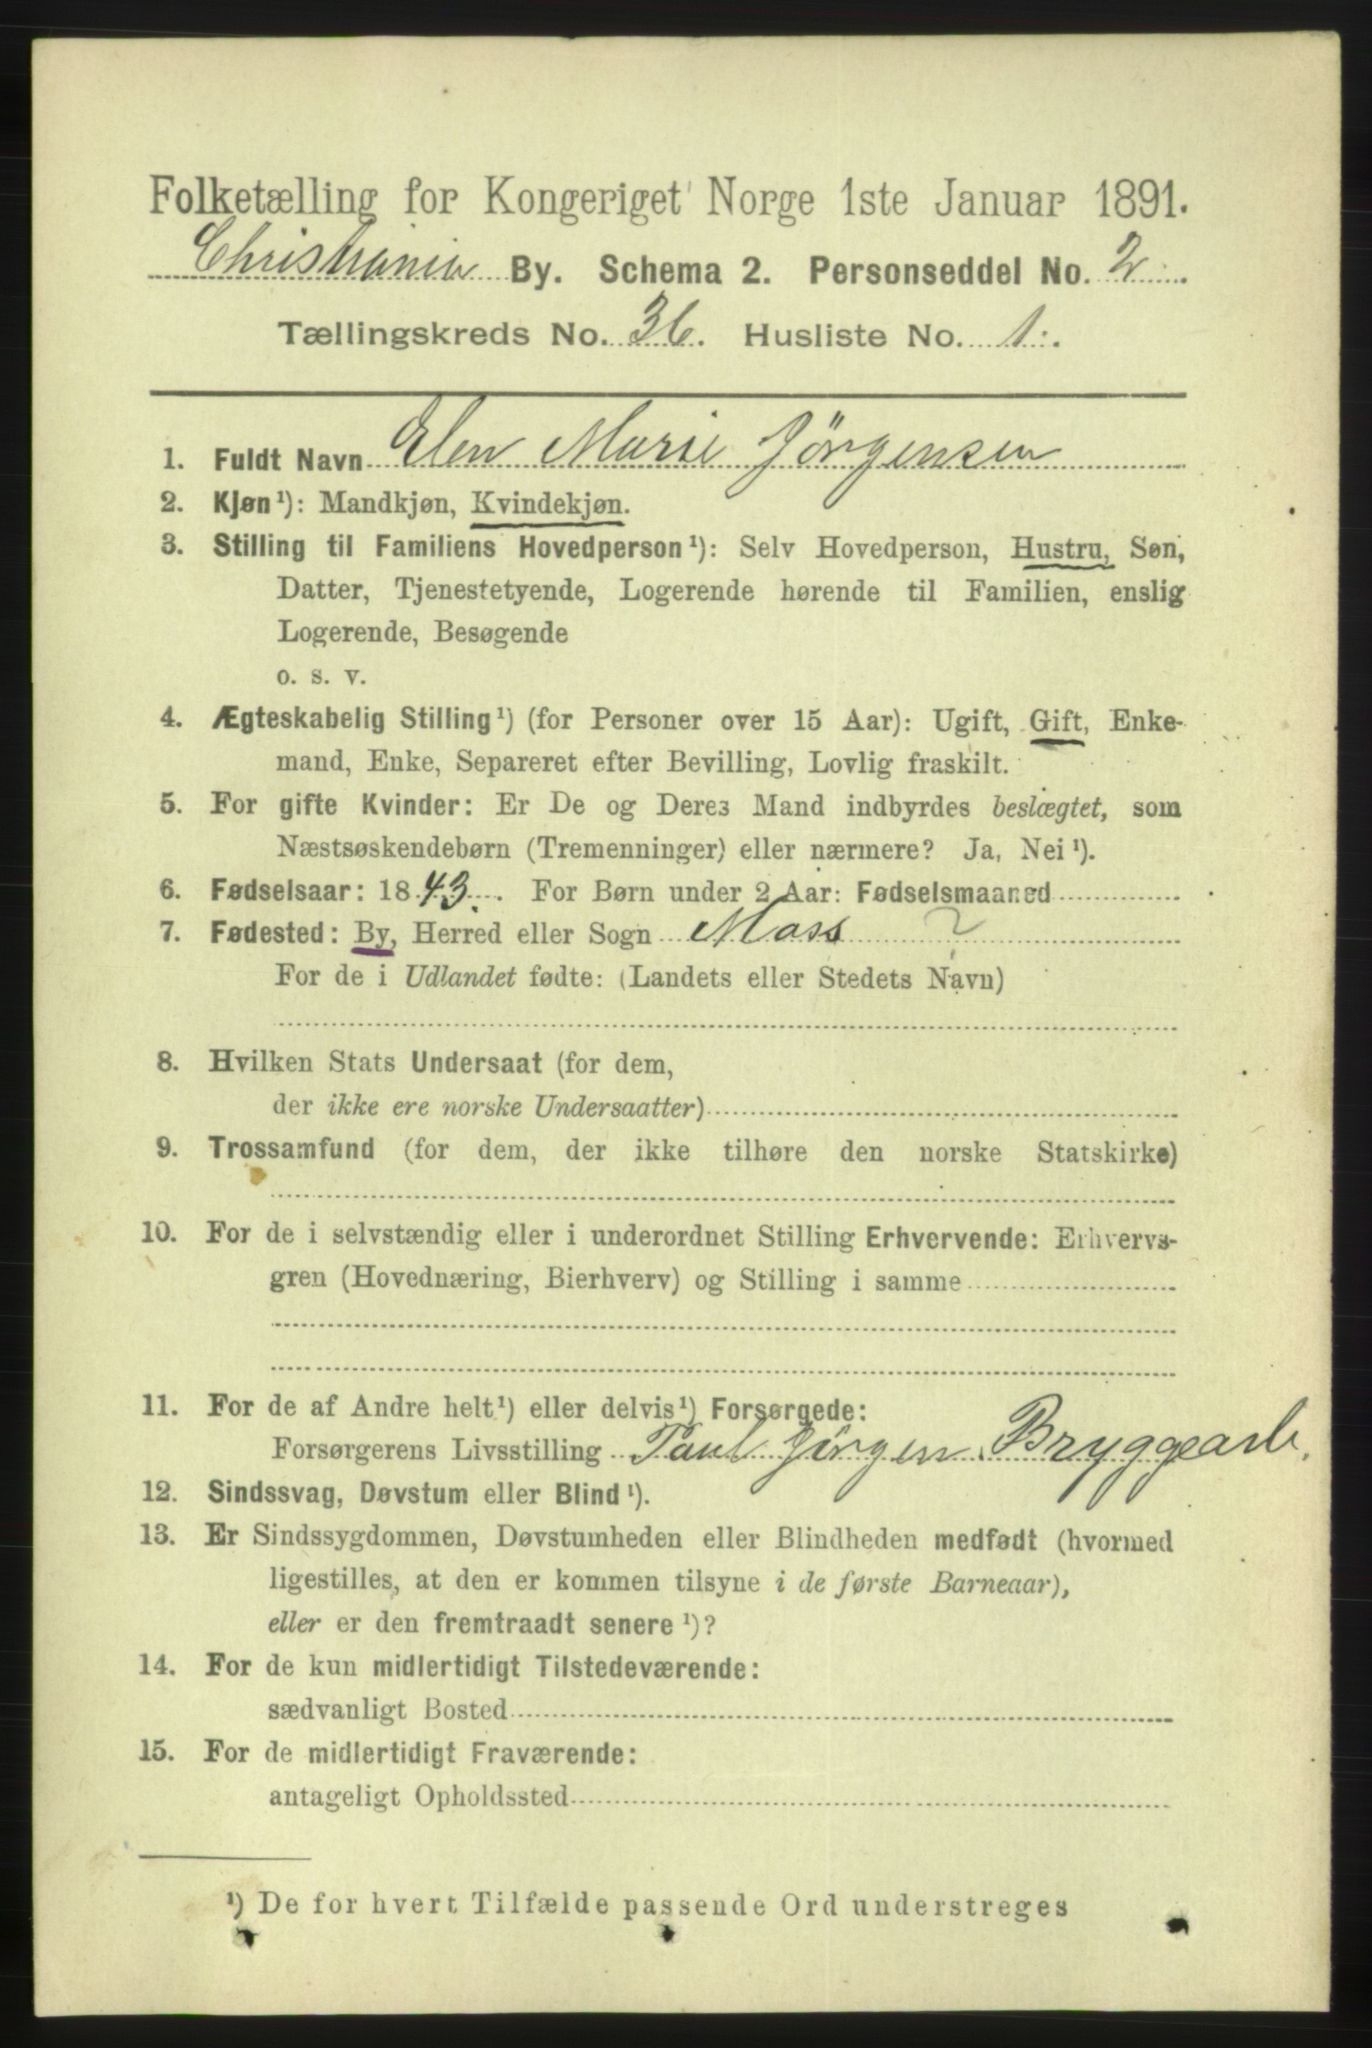 Folketælling for Kongeriget Norge 1ste Januar 1891.
Christiania By. Schema 2. Personseddel No. 2.
Tællingskreds No. 36. Husliste No. 1.
1. Fuldt Navn Elen Marie Jörgensen
2. Kjøn¹): Mandkjøn, Kvindekjøn.
3. Stilling til Familiens Hovedperson¹): Selv Hovedperson, Hustru, Søn,
Datter, Tjenestetyende, Logerende hørende til Familien, enslig
Logerende, Besøgende
o. s. v.
4. Ægteskabelig Stilling¹) (for Personer over 15 Aar): Ugift, Gift, Enke-
mand, Enke, Separeret efter Bevilling, Lovlig fraskilt.
5. For gifte Kvinder: Er De og Deres Mand indbyrdes beslægtet, som
Næstsøskendebørn (Tremenninger) eller nærmere? Ja, Nei¹).
6. Fødselsaar: 1843. For Børn under 2 Aar: Fødselsmaaned
7. Fødested: By, Herred eller Sogn Moss ?
For de i Udlandet fødte: (Landets eller Stedets Navn)
8. Hvilken Stats Undersaat (for dem,
der ikke ere norske Undersaatter)
9. Trossamfund (for dem, der ikke tilhøre den norske Statskirke)
10. For de i selvstændig eller i underordnet Stilling Erhvervende: Erhvervs-
gren (Hovednæring, Bierhverv) og Stilling i samme
11. For de af Andre helt¹) eller delvis¹) Forsørgede:
Forsørgerens Livsstilling Paul Jörgen. Bryggearb.
12. Sindssvag, Døvstum eller Blind¹).
13. Er Sindssygdommen, Døvstumheden eller Blindheden medfødt (hvormed
ligestilles, at den er kommen tilsyne i de første Barneaar),
eller er den fremtraadt senere¹)?
14. For de kun midlertidigt Tilstedeværende:
sædvanligt Bosted
15. For de midlertidigt Fraværende:
antageligt Opholdssted
¹) De for hvert Tilfælde passende Ord understreges